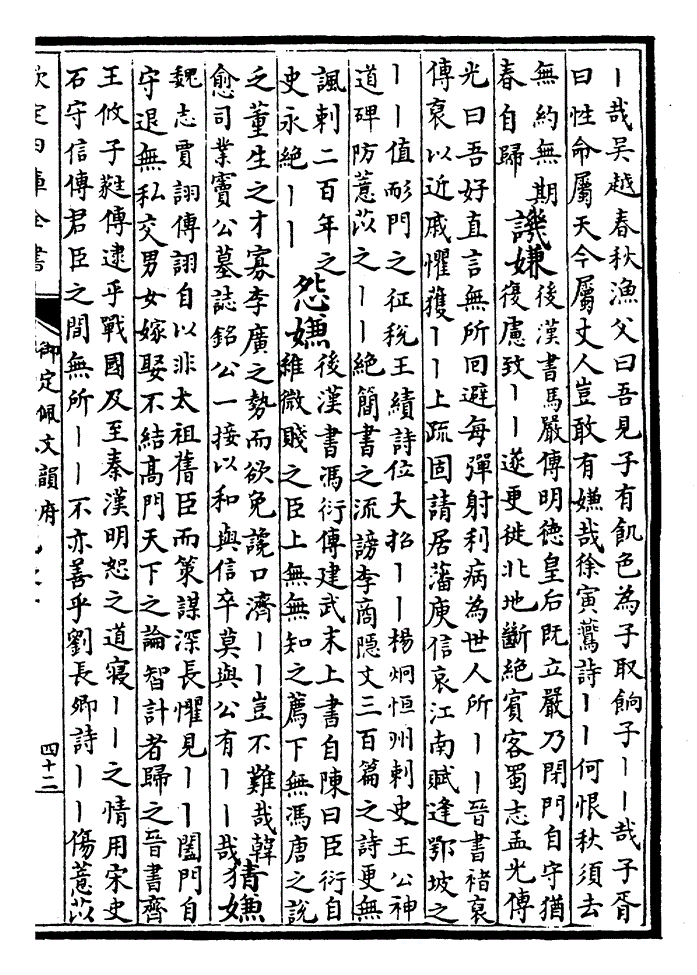 丨哉吴越春秋漁父曰吾見子有飢色為子取餉子丨丨哉子胥
曰性命屬天今屬丈人豈敢有嫌哉徐寅鷰詩丨丨何恨秋須去
無約無期
春自歸
譏嫌
後漢書馬嚴傳明德皇后既立嚴乃閉門自守猶
復慮致丨丨遂更徙北地斷絶賓客蜀志孟光傳
光曰吾好直言無所回避每彈射利病為世人所丨丨晉書禇裒
傳裒以近戚懼獲丨丨上疏固請居藩庾信哀江南賦逢鄂坡之
丨丨值耏門之征税王績詩位大招丨丨楊炯恒州刺史王公神
道碑防薏苡之丨丨絶簡書之流謗李商隱文三百篇之詩更無
諷刺二百年之
史永絶丨丨
怨嫌
後漢書馮衍傳建武末上書自陳曰臣衍自
維微賤之臣上無無知之薦下無馮唐之說
乏董生之才寡李廣之勢而欲免讒口濟丨丨豈不難哉韓
愈司業竇公墓誌銘公一接以和與信卒莫與公有丨丨哉
猜嫌
魏志賈詡傳詡自以非太祖舊臣而策謀深長懼見丨丨闔門自
守退無私交男女嫁娶不結高門天下之論智計者歸之晉書齊
王攸子蕤傳逮乎戰國及至秦漢明恕之道寝丨丨之情用宋史
石守信傳君臣之間無所丨丨不亦善乎劉長卿詩丨丨傷薏苡
欽定四庫全書
御定佩文韻府
四十二